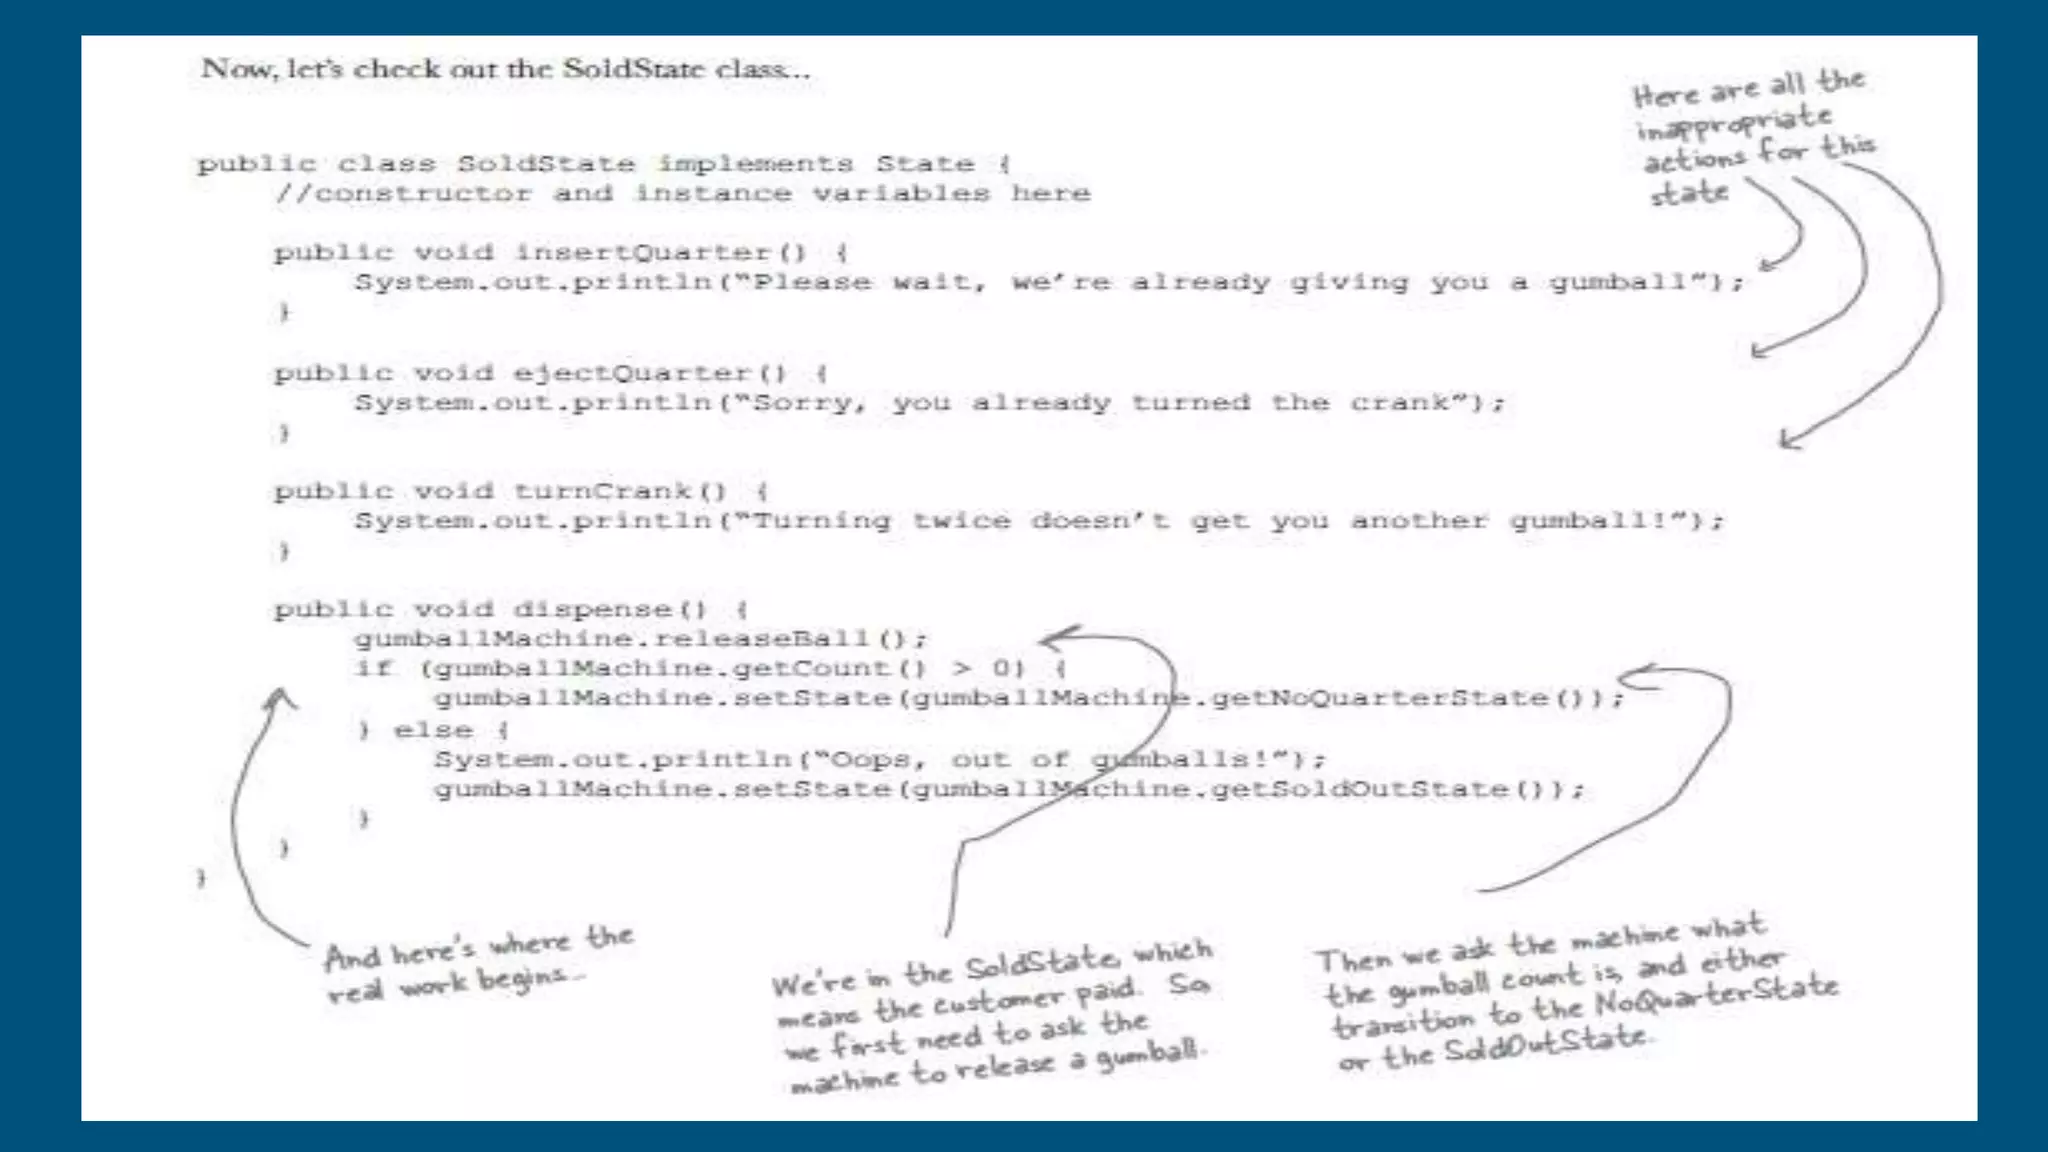 Now, let's check out the SoldState class...
Here are all the
inappropriate
actions for this
state
public class SoldState implements State {
//constructor and instance variables here
public void insertQuarter() {
System.out.println("Please wait, we're already giving you a gumball");
}
public void ejectQuarter() {
System.out.println("Sorry, you already turned the crank");
}
public void turnCrank() {
System.out.println("Turning twice doesn't get you another gumball!");
}
public void dispense() {
gumballMachine.releaseBall();
if (gumballMachine.getCount() > 0) {
gumballMachine.setState(gumballMachine.getNoQuarterState());
} else {
System.out.println("Oops, out of gumballs!");
gumballMachine.setState(gumballMachine.getSoldOutState());
}
}
}
And here's where the
real work begins...
We're in the SoldState, which
means the customer paid. So,
we first need to ask the
machine to release a gumball.
Then we ask the machine what
the gumball count is, and either
transition to the NoQuarterState
or the SoldOutState.